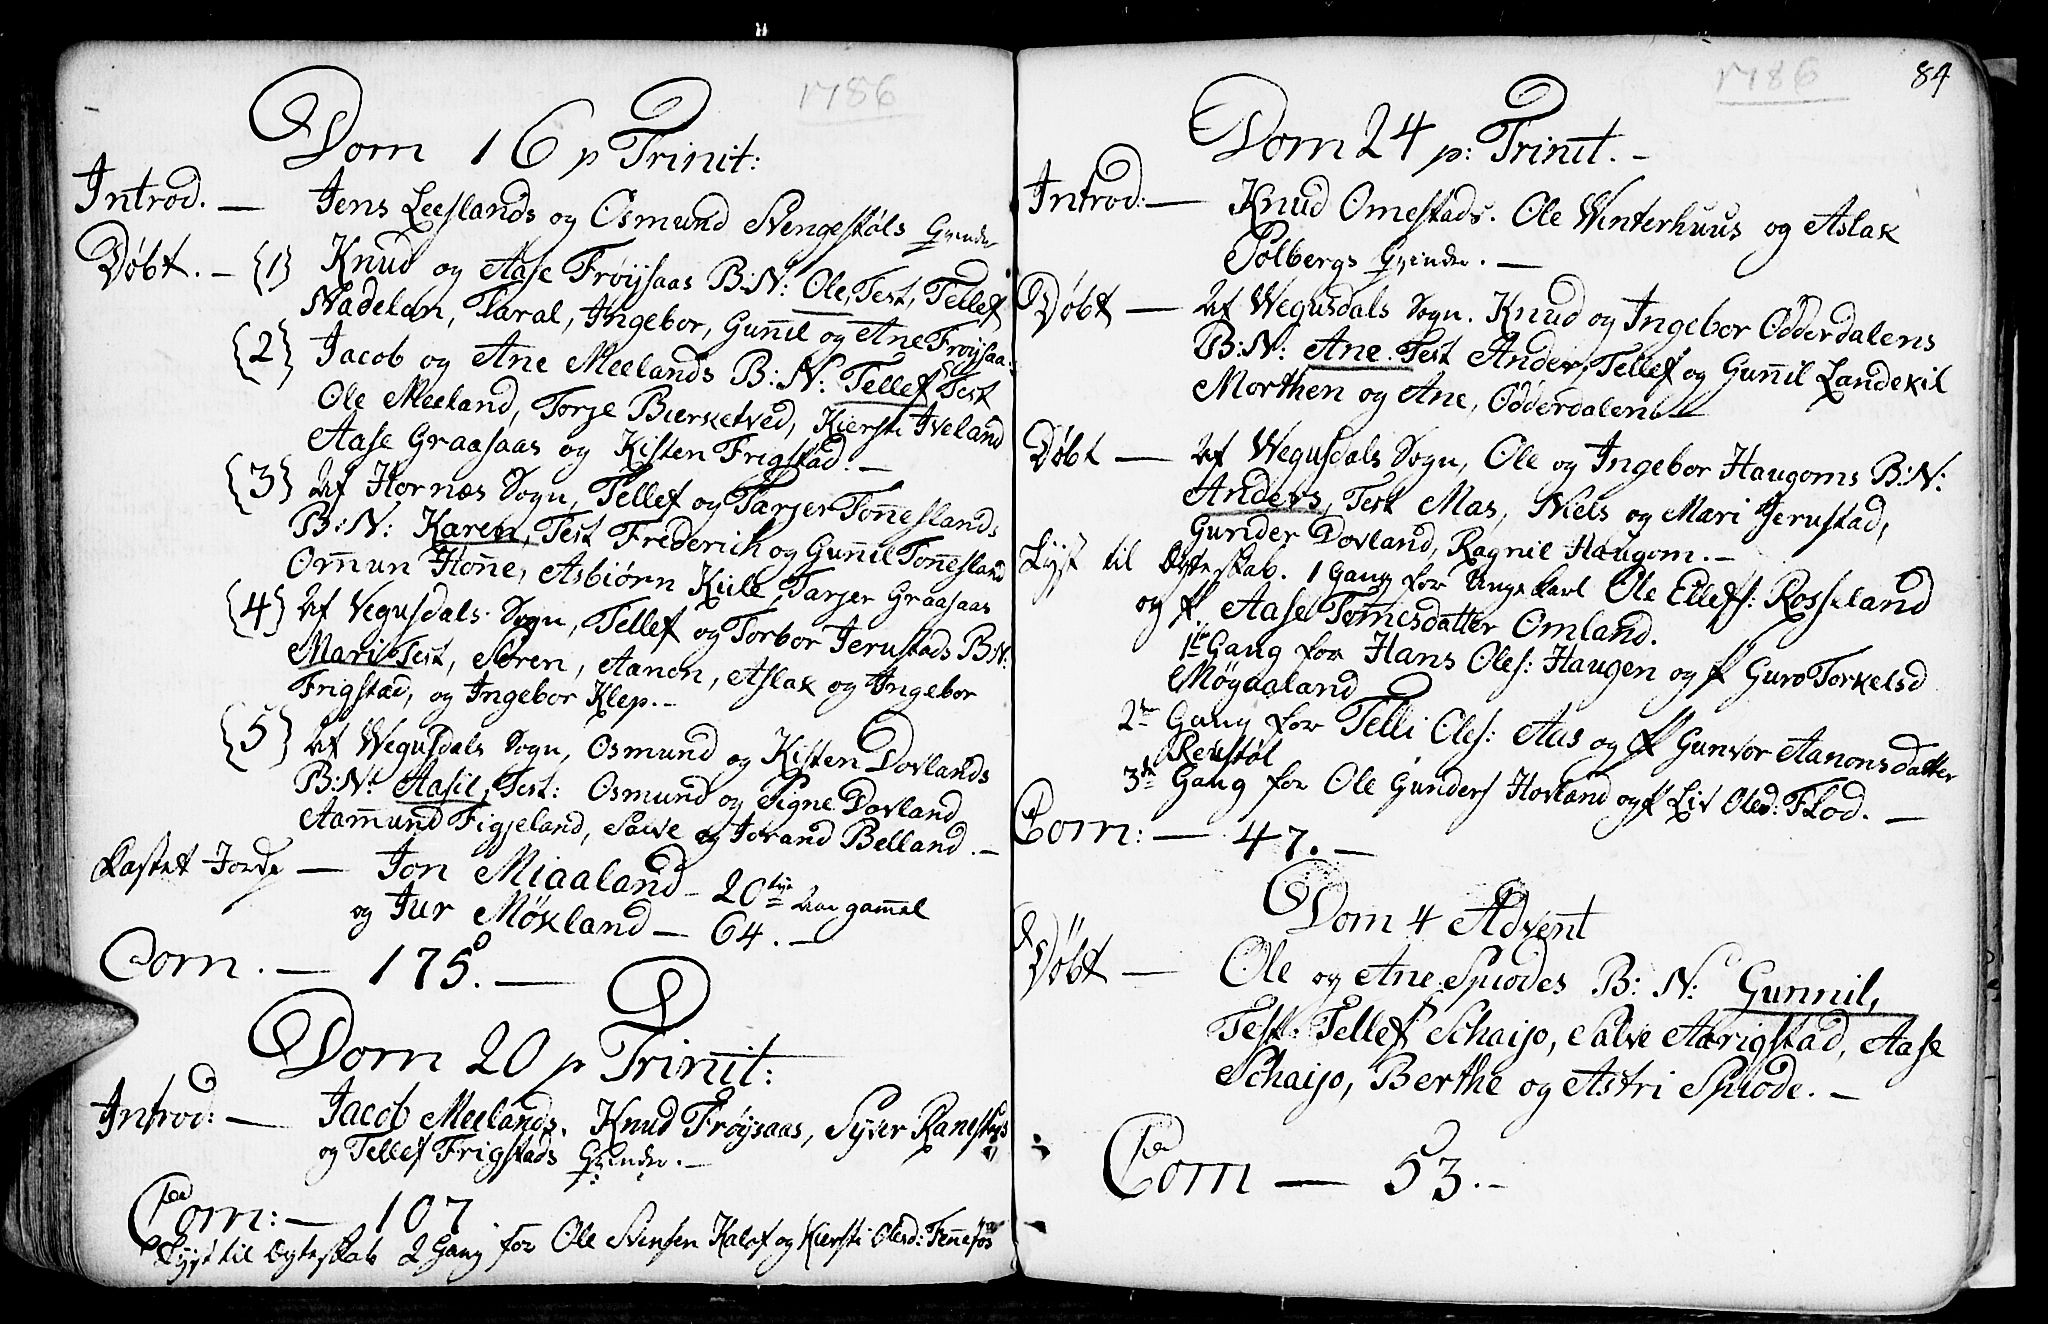 1786
Dom 16 p Trinit:
Introd. — Jens Leeslands og Osmund Svengestøls Qvinder
Døbt. — {1} Knud og Aase Frøysaas B:N: Ole, Test, Tellef
Nadelan, Taral, Ingebor, Gun̄il og Ane Frøysaa:
{2} Jacob og Ane Meelands B:N: Tellef Test
Ole Meeland, Torje Bierketved, Kiersti Iveland
Aase Graasaas og Kisten Frigstad. —
{3} Af Hornæs Sogn, Tellef og Tarjer Ton̄eslands
B:N: Karen, Test Frederich og Gun̄il Ton̄esland
Om̄un Hon̄e, Asbiørn Kiile, Tarjer Graasaas
{4} Af Vegusdals Sogn, Tellef og Torbor Jerustads B:N:
Mari Test, Søren, Aanon, Aslak og Ingebor
Frigstad, og Ingebor Klep. –
{5} Af Wegusdals Sogn, Osmund og Kisten Dovlands
B:N: Aasil, Test: Osmund og Signe Dovland
Aam̄und Figjeland, Salve og Jorand Belland. —
Kastet Jord paa — Jon Miaaland – 20tyve Aar gam̄el
og Jur Møkland — 64. —
Com. — 175. —
Dom 20 p Trinit:
Introd: — Jacob Meelands, Knud Frøysaas, Syver Ranestøls
og Tellef Frigstads Qvinder. —
Com: — 107.
Lyst til Ægteskab 2 Gang for Ole Svensen Kalef og Kiersti Olesd: Fen̄efos
1786
84
Dom 24 p: Trinit. –
Introd: — Knud Omestads. Ole Winterhuus og Aslak
Solbergs Qvinder. —
Døbt — Af Wegusdals Sogn. Knud og Ingebor Odderdalens
B:N: Ane. Test Anders, Tellef og Gun̄il Landekil
Morthen og Ane, Odderdalen
Døbt — Af Wegusdals Sogn, Ole og Ingebor Haugoms B:N:
Anders, Test Mas, Niels og Mari Jerustad,
Gunder Dovland, Ragnil Haugom. –
Lyst til Ægteskab. 1 Gang for Ungekarl Ole Ellefs: Rosseland
og P. Aase Tom̄esdatter Omland.
1te Gang for Hans Oles: Haugen og P Guro Torkelsd
Møgaaland
2den Gang for Telli Oles: Aas og P Gunvor Aanonsdatter
Reiestøl
3die Gang for Ole Gunders Hovland og P Liv Olesd: Flod. —
Com: — 47. —
Dom 4 Advent
Døbt — Ole og Ane Spiodes B: N: Gunnil,
Test: Tellef Schaijo, Salve Aarigstad, Aase
Schaijo, Berthe og Astri Spiode. —
Com — 53. –